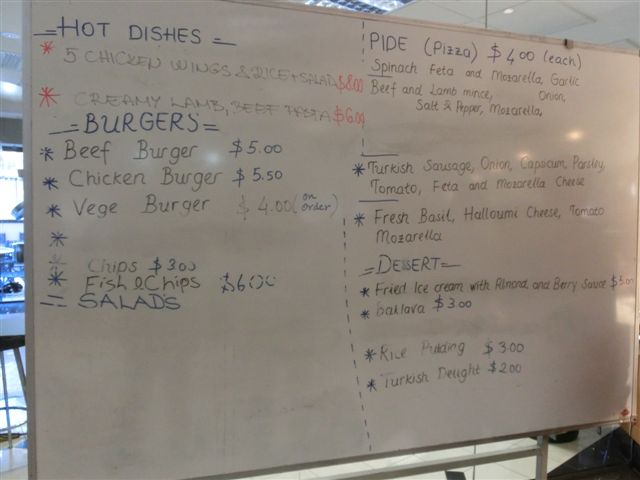 = HOT DISHES =
* 5 CHICKEN WINGS & RICE + SALAD $8.00
* CREAMY LAMB, BEEF PASTA $6.00
= BURGERS =
* Beef Burger $5.00
* Chicken Burger $5.50
* Vege Burger $4.00 (on order)
*
* Chips $3.00
* Fish & Chips $6.00
= SALADS
PIDE (Pizza) $4.00 (each)
Spinach Feta and Mozarella, Garlic
Beef and Lamb mince, Onion,
Salt & Pepper, Mozarella,
* Turkish Sausage, Onion, Capsicum, Parsley,
Tomato, Feta and Mozarella Cheese
* Fresh Basil, Halloumi Cheese, Tomato
Mozarella
= DESSERT =
* Fried Ice cream with Almond and Berry Sauce $5.00
* baklava $3.00
* Rice Pudding $3.00
* Turkish Delight $2.00